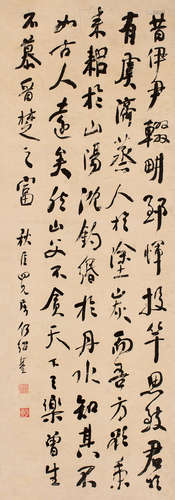 昔伊尹輟畊郅惲投竿思致君於
有虞濟蒸人於塗炭而吾方欲秉
耒耜於山陽沈鈎緡於丹水知其不
如古人遠矣然山父不貪天下之樂曾生
不慕晉楚之富 秋臣四兄屬何紹基